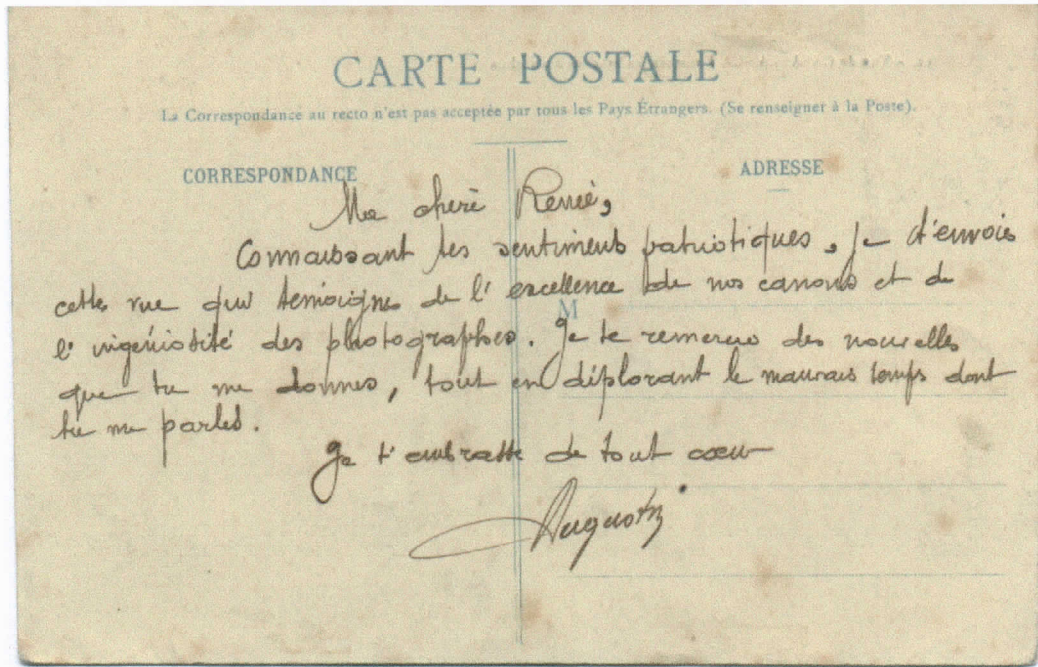 CARTE POSTALE
La Correspondance au recto n'est pas acceptée par tous les Pays Étrangers. (Se renseigner à la Poste).
CORRESPONDANCE
ADRESSE
Ma chère Renée,
Connaissant tes sentiments patriotiques, je t'envoie
cette vue qui témoigne de l'excellence de nos canons et de
l'ingéniosité des photographes. Je te remercie des nouvelles
que tu me donnes, tout en déplorant le mauvais temps dont
tu me parles.
Je t'embrasse de tout cœur
Augustin
M